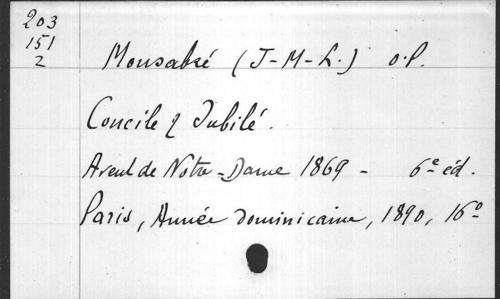 203
151
2
Monsabré (J-M-L.) o.p.
Concile & Jubilé.
Avent de Notre-Dame 1869 - 6e éd.
Paris, Année Dominicaine, 1890, 16o